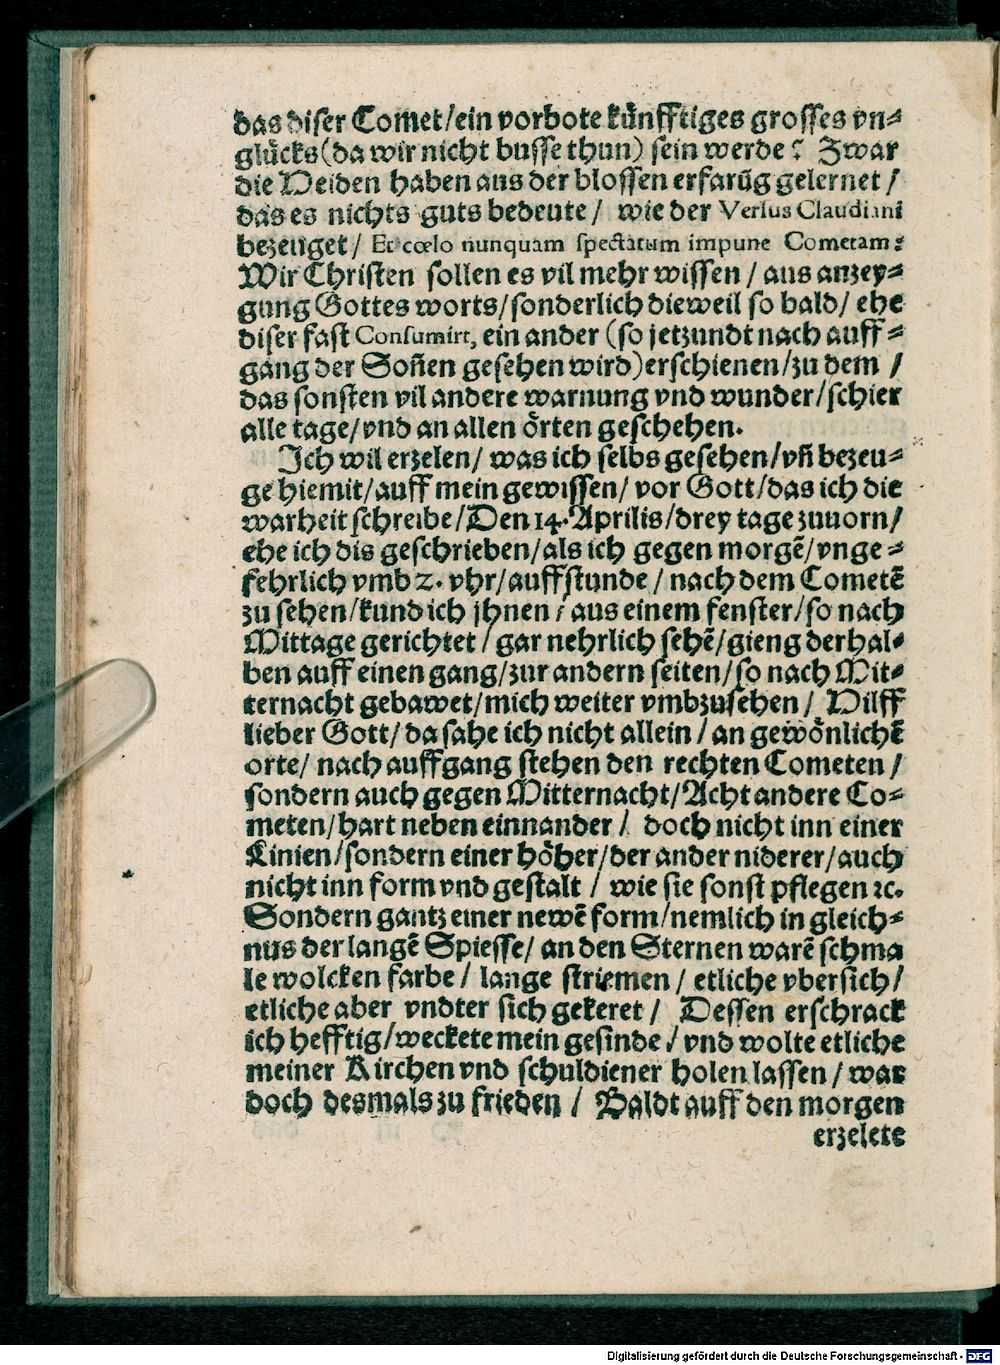 das diser Comet/ein vorbote künfftiges grosses vn⸗
glücks(da wir nicht busse thun) sein werde? Zwar
die Heiden haben aus der blossen erfarũg gelernet /
das es nichts guts bedeute / wie der Versus Claudiani
bezeuget / Et cœlo nunquam spectatum impune Cometam:
Wir Christen sollen es vil mehr wissen / aus anzey⸗
gung Gottes worts/sonderlich dieweil so bald/ ehe
diser fast Consumirt, ein ander (so jetzundt nach auff⸗
gang der Soñen gesehen wird)erschienen/zu dem /
das sonsten vil andere warnung vnd wunder/schier
alle tage/vnd an allen örten geschehen.
Ich wil erzelen/ was ich selbs gesehen/vñ bezeu⸗
ge hiemit/auff mein gewissen/ vor Gott/das ich die
warheit schreibe/Den 14. Aprilis/drey tage zuuorn/
ehe ich dis geschrieben/als ich gegen morgẽ/vnge⸗
fehrlich vmb 2. vhr/auffstunde / nach dem Cometẽ
zu sehen/kund ich jhnen / aus einem fenster/so nach
Mittage gerichtet / gar nehrlich sehẽ/gieng derhal⸗
ben auff einen gang/zur andern seiten/so nach Mit⸗
ternacht gebawet/mich weiter vmbzusehen / Hilff
lieber Gott/ da sahe ich nicht allein / an gewönlichẽ
orte/ nach auffgang stehen den rechten Cometen /
sondern auch gegen Mitternacht/Acht andere Co⸗
meten/hart neben einnander / doch nicht inn einer
Linien/sondern einer höher/der ander niderer/auch
nicht inn form vnd gestalt / wie sie sonst pflegen ꝛc.
Sondern gantz einer newẽ form/nemlich in gleich⸗
nus der langẽ Spiesse/ an den Sternen warẽ schma
le wolcken farbe / lange striemen / etliche vbersich/
etliche aber vndter sich gekeret / Dessen erschrack
ich hefftig/weckete mein gesinde / vnd wolte etliche
meiner Kirchen vnd schuldiener holen lassen / war
doch desmals zu frieden / Baldt auff den morgen
erzelete
Digitalisierung gefördert durch die Deutsche Forschungsgemeinschaft - DFG